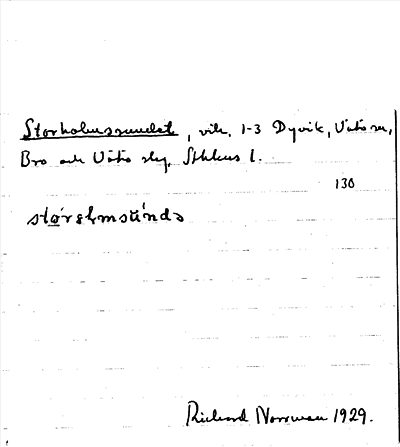 Storholmssundet, vik, 1-3 Dyvik, Vätö sn,
Bro och Vätö skg, Sthlms l.
130
Richard Norrman 1929.